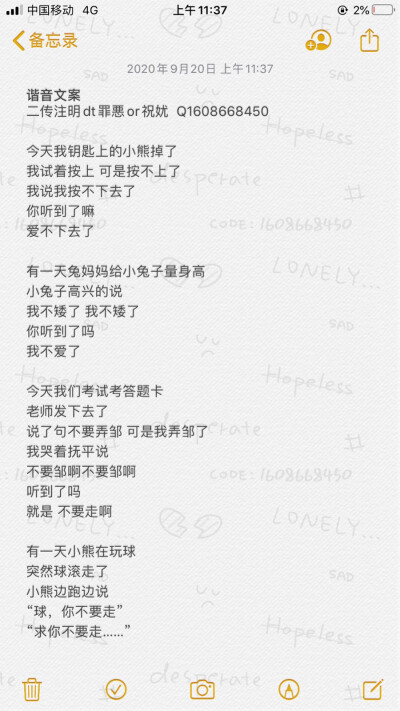 中国移动 4G 上午11:37 2%
备忘录
2020年9月20日 上午11:37
谐音文案
二传注明dt罪悪or祝妩 Q1608668450
今天我钥匙上的小熊掉了
我试着按上 可是按不上了
我说我按不下去了
你听到了嘛
爱不下去了
有一天兔妈妈给小兔子量身高
小兔子高兴的说
我不矮了 我不矮了
你听到了吗
我不爱了
今天我们考试考答题卡
老师发下去了
说了句不要弄邹 可是我弄邹了
我哭着抚平说
不要邹啊不要邹啊
听到了吗
就是 不要走啊
有一天小熊在玩球
突然球滚走了
小熊边跑边说
“球，你不要走”
“求你不要走……”
LONELY...
SAD
desperate
CODE:1608668450
LONELY...
SAD
Hopeless
desperate
CODE:1608668450
LONELY...
SAD
Hopeless
desperate